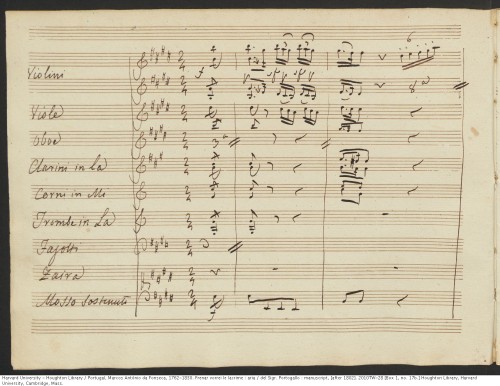 6
Violini
Viole
Oboe
8va
Clarini in La
Corni in Mi
Trombe in La
Fagotti
Zaira
Mosso Sostenuto
Harvard University - Houghton Library / Portugal, Marcos António da Fonseca, 1762-1830. Frenar vorrei le lacrime : aria / del Sigr. Portogallo : manuscript, [after 1802]. 2010TW-28 (Box 1, no. 17b.) Houghton Library, Harvard
University, Cambridge, Mass.